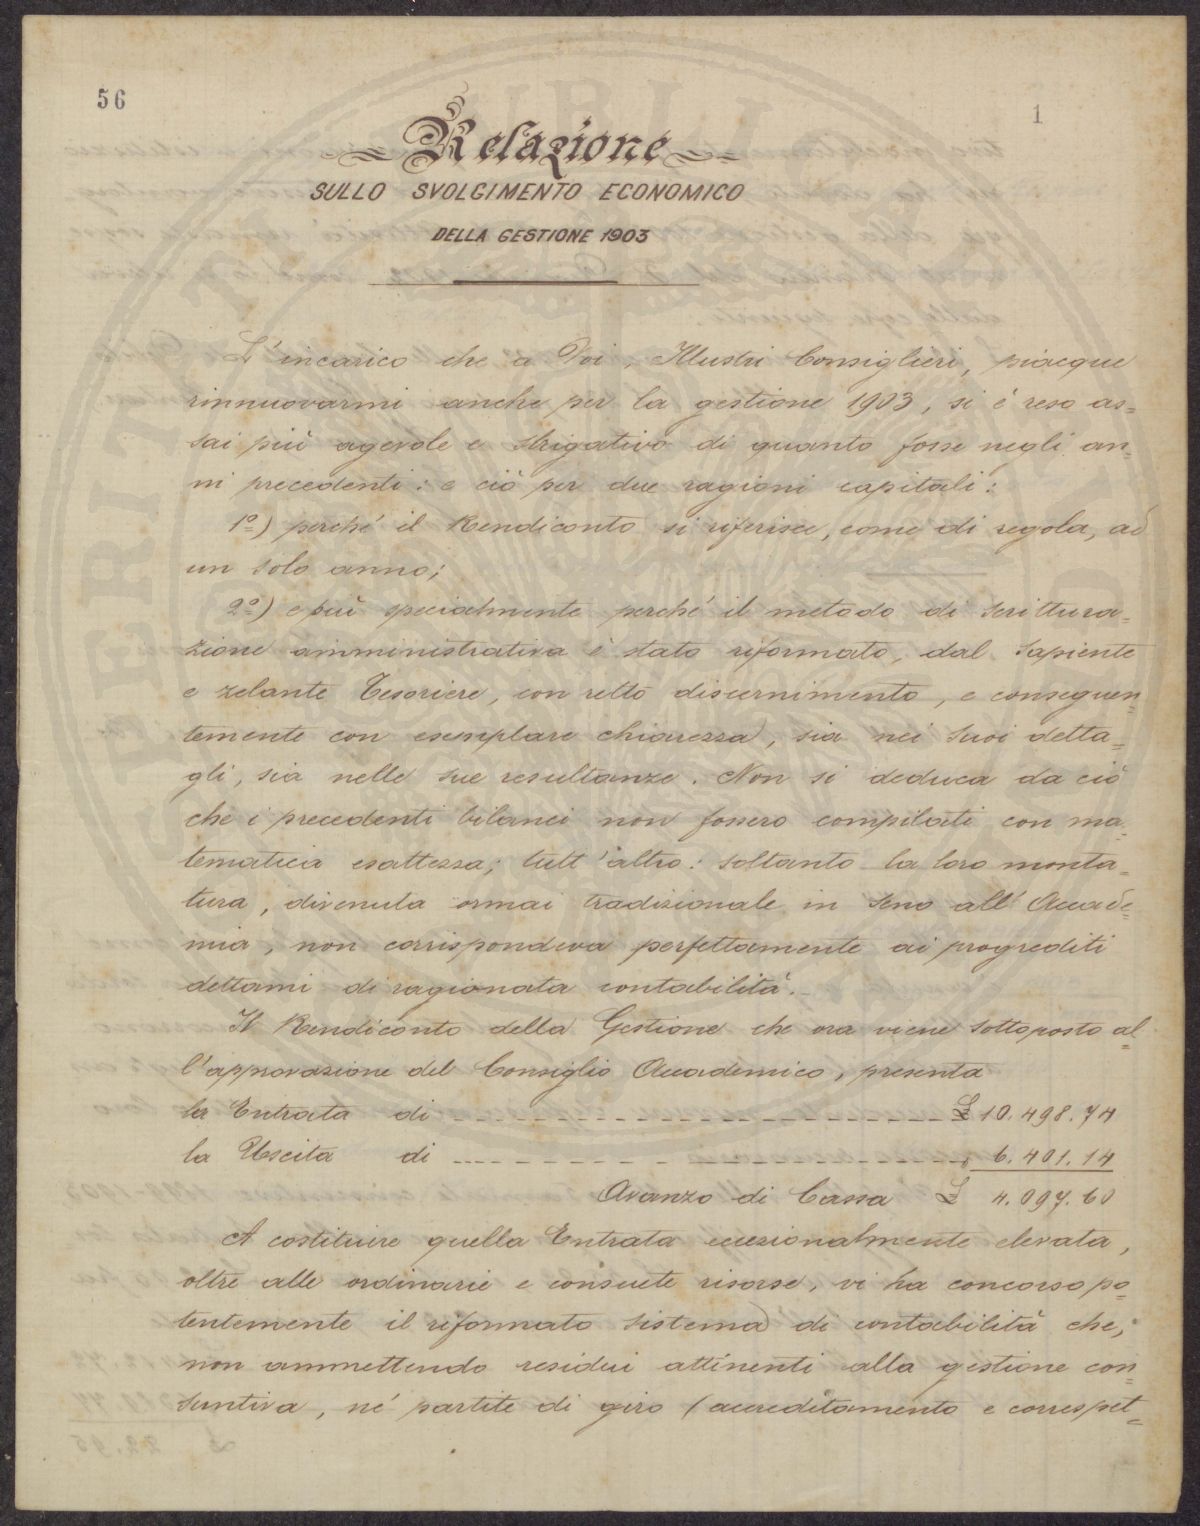 56
1
Relazione
SULLO SVOLGIMENTO ECONOMICO
DELLA GESTIONE 1903
L'incarico che a Voi, Illustri Consiglieri, piacque
rinnuovarmi anche per la gestione 1903, si è reso as=
sai più agevole e strigativo di quanto fosse negli an=
ni precedenti: e ciò per due ragioni capitali:
1º) perché il Rendiconto si riferisce, come di regola, ad
un solo anno;
2º) e più specialmente perché il metodo di scrittura=
zione amministrativa è stato riformato, dal sapiente
e zelante Tesoriere, con retto discernimento, e conseguen=
temente con esemplare chiarezza, sia nei suoi detta=
gli, sia nelle sue resultanze. Non si deduca da ciò
che i precedenti bilanci non fossero compilati con ma=
tematica esattezza; tutt'altro: soltanto la loro monta=
tura, divenuta ormai tradizionale in seno all'Accade=
mia, non corrispondeva perfettamente ai progrediti
dettami di ragionata contabilità.
Il Rendiconto della Gestione che ora viene sottoposto al=
l'approvazione del Consiglio Accademico, presenta
la Entrata di ------ £ 10.498.74
la Uscita di ------ 6.401.14
Avanzo di Cassa £ 4.097.60
A costituire quella Entrata eccezionalmente elevata,
oltre alle ordinarie e consuete risorse, vi ha concorso po=
tentemente il riformato sistema di contabilità che,
non ammettendo residui attinenti alla gestione con=
suntiva, né partite di giro (accreditamento e corrispet=